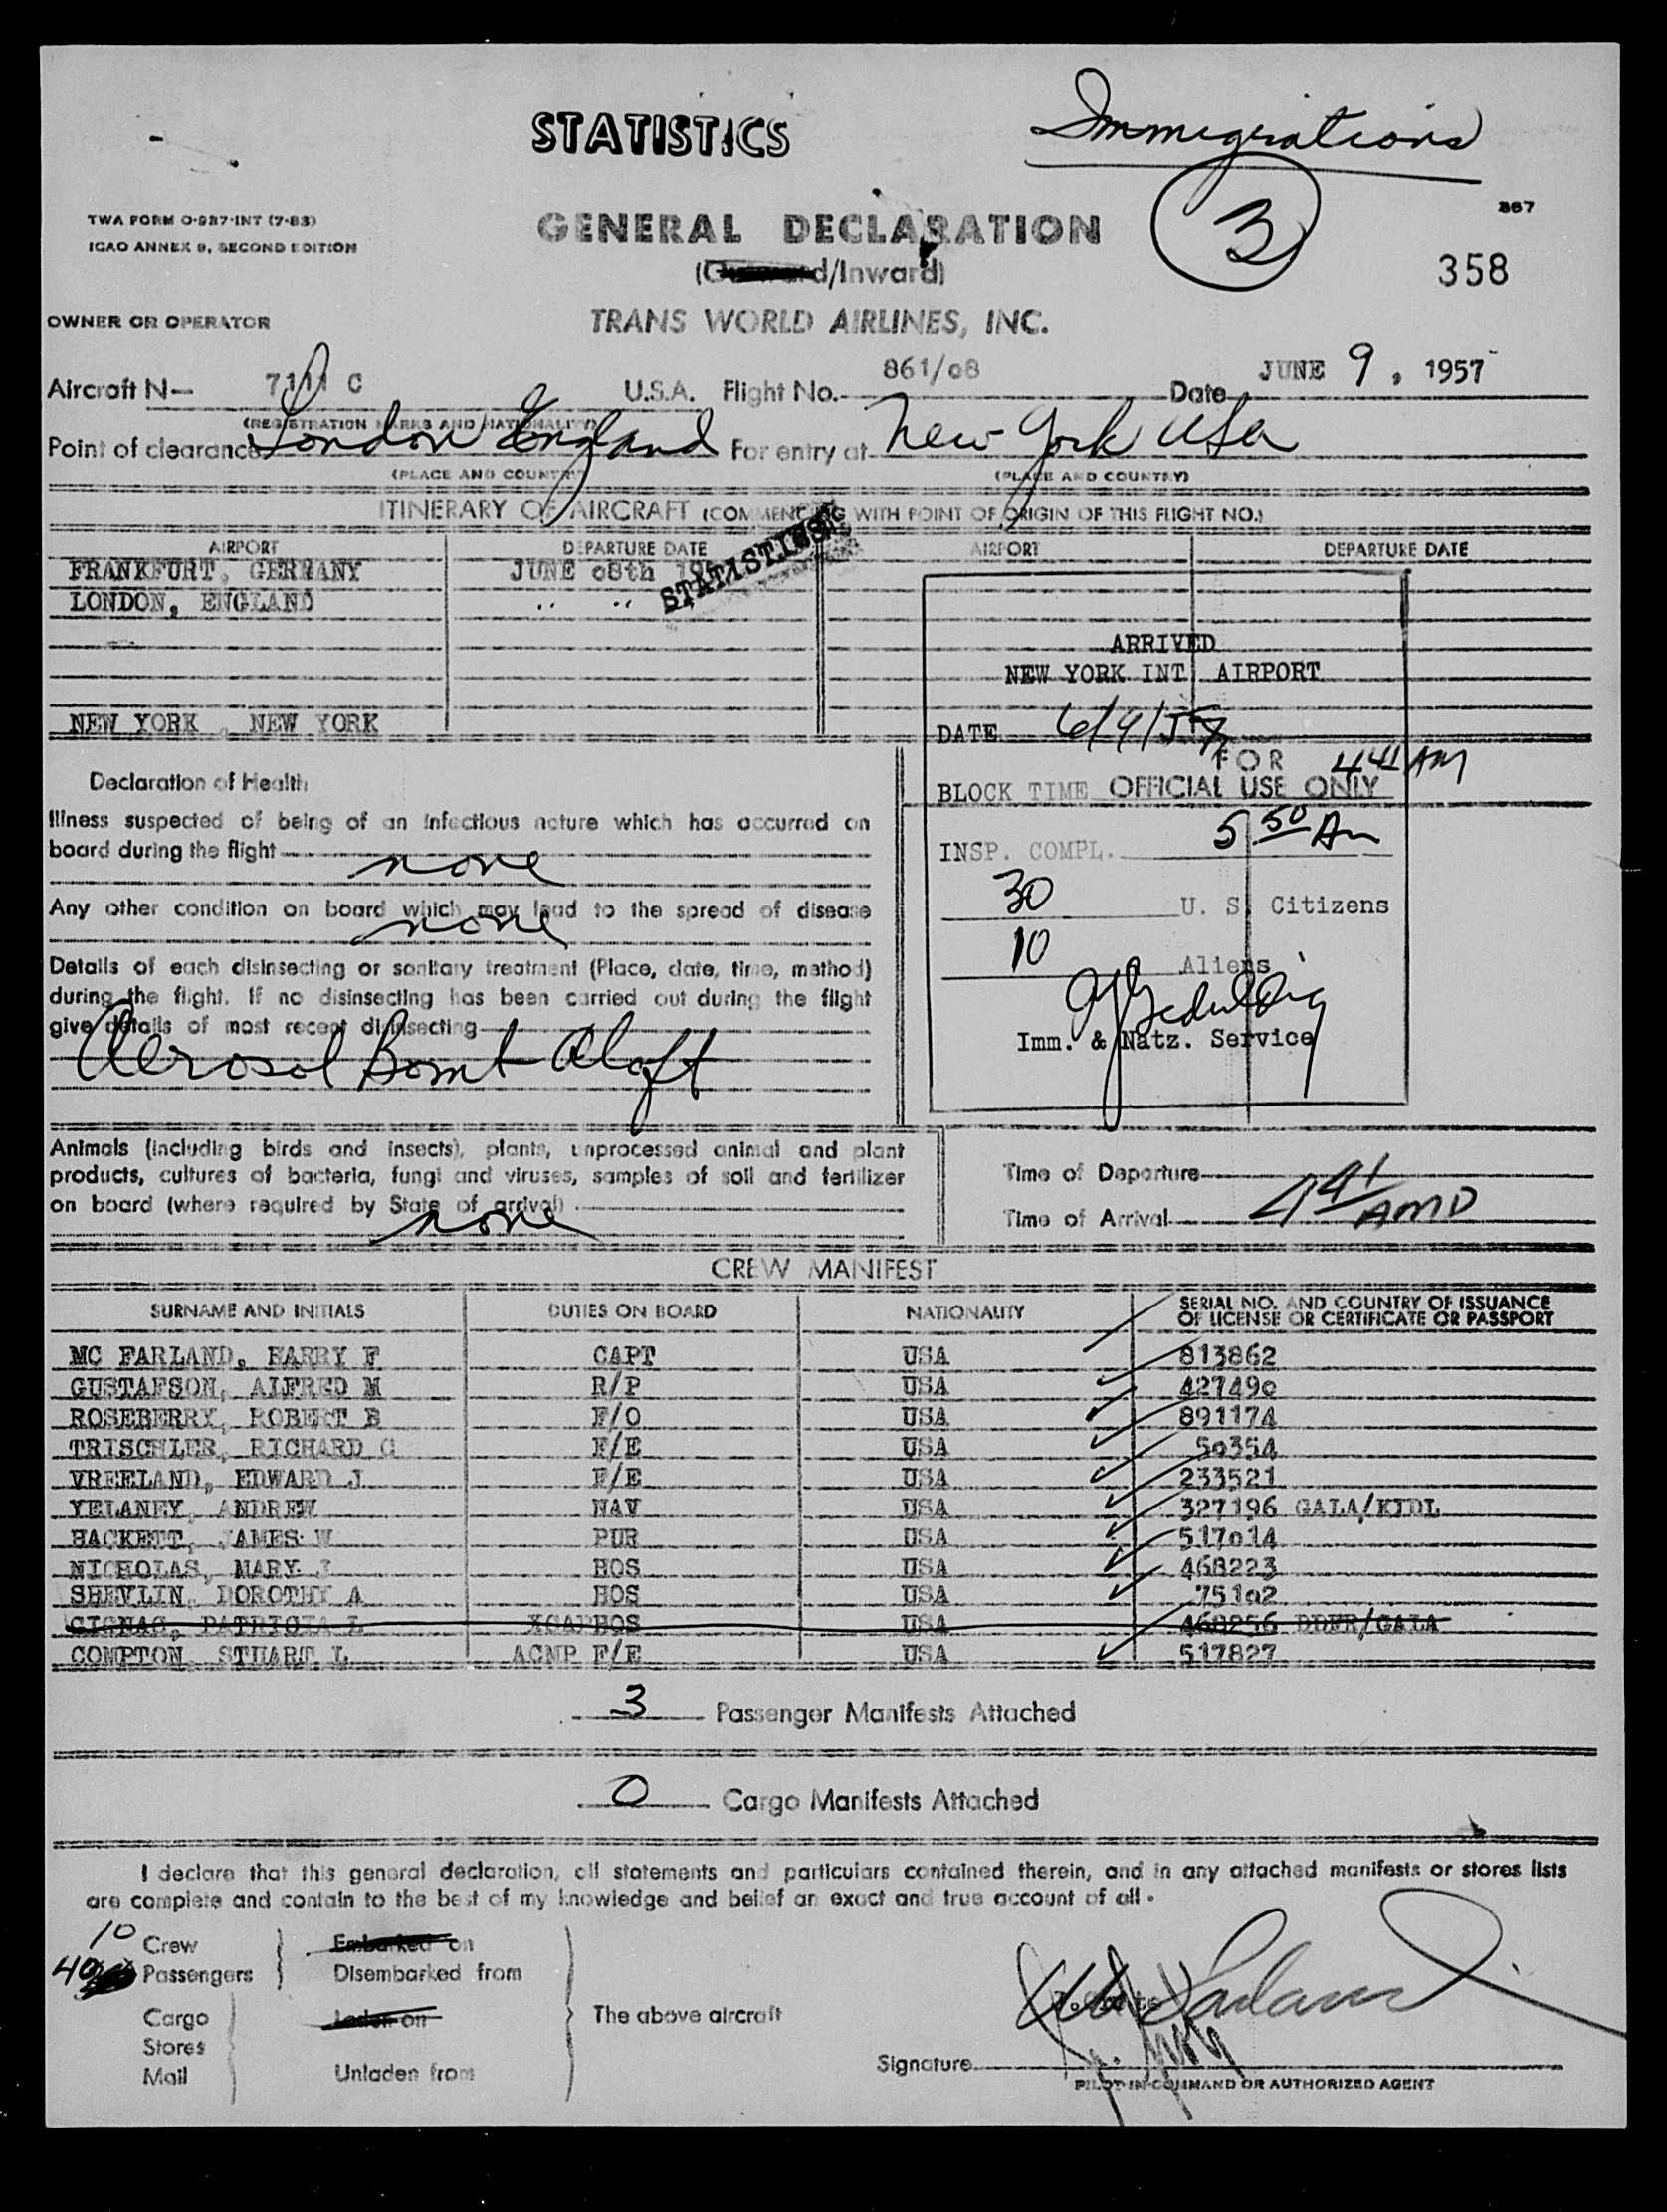 STATISTICS
Immigrations
3
TWA FORM O-987-INT (7-53)
ICAO ANNEX 9, SECOND EDITION
GENERAL DECLARATION
367
358
d/Inward)
OWNER OR OPERATOR
TRANS WORLD AIRLINES, INC.
Aircraft N— C U.S.A. Flight No. 861/o8 Date JUNE 9, 1957
(REGISTRATION MARKS AND NATIONALITY)
Point of clearance London England For entry at New York USA
(PLACE AND COUNTRY) (PLACE AND COUNTRY)
ITINERARY OF AIRCRAFT (COMMENCING WITH POINT OF ORIGIN OF THIS FLIGHT NO.)
AIRPORT DEPARTURE DATE AIRPORT DEPARTURE DATE
FRANKFURT, GERMANY JUNE o8th
STATISTICS
LONDON, ENGLAND " "
ARRIVED
NEW YORK INT AIRPORT
NEW YORK , NEW YORK
DATE 6/9/57
FOR
OFFICIAL USE ONLY
BLOCK TIME 441 AM
INSP. COMPL. 5 50 Am
30 U. S. Citizens
10 Aliens
Imm. & Natz. Service
Declaration of Health
Illness suspected of being of an infectious nature which has occurred on
board during the flight none
Any other condition on board which may lead to the spread of disease
none
Details of each disinsecting or sanitary treatment (Place, date, time, method)
during the flight. If no disinsecting has been carried out during the flight
give details of most recent disinsecting
Aerosol Bomb Aloft
Animals (including birds and insects), plants, unprocessed animal and plant
products, cultures of bacteria, fungi and viruses, samples of soil and fertilizer
on board (where required by State of arrival)
none
Time of Departure
Time of Arrival 441 AM
CREW MANIFEST
SURNAME AND INITIALS DUTIES ON BOARD NATIONALITY SERIAL NO. AND COUNTRY OF ISSUANCE
OF LICENSE OR CERTIFICATE OR PASSPORT
MC FARLAND, HARRY F CAPT USA 813862
GUSTAFSON, ALFRED M R/P USA 42749o
ROSEBERRY, ROBERT B F/O USA 891174
TRISCHLER, RICHARD G F/E USA 5o354
VREELAND, EDWARD J F/E USA 233521
YELANEY, ANDREW NAV USA 327196 GALA/KIDL
HACKETT, JAMES W PUR USA 517o14
NICHOLAS, MARY J HOS USA 468223
SHEVLIN, DOROTHY A HOS USA 751o2
GIGNAC, PATRICIA L XCAPHOS USA 468256 DDER/GALA
COMPTON, STUART L ACMP F/E USA 517827
3 Passenger Manifests Attached
0 Cargo Manifests Attached
I declare that this general declaration, all statements and particulars contained therein, and in any attached manifests or stores lists
are complete and contain to the best of my knowledge and belief an exact and true account of all •
10 Crew Embarked on
40 Passengers Disembarked from
Cargo Laden on The above aircraft
Stores
Mail Unladen from
Signature
PILOT-IN-COMMAND OR AUTHORIZED AGENT